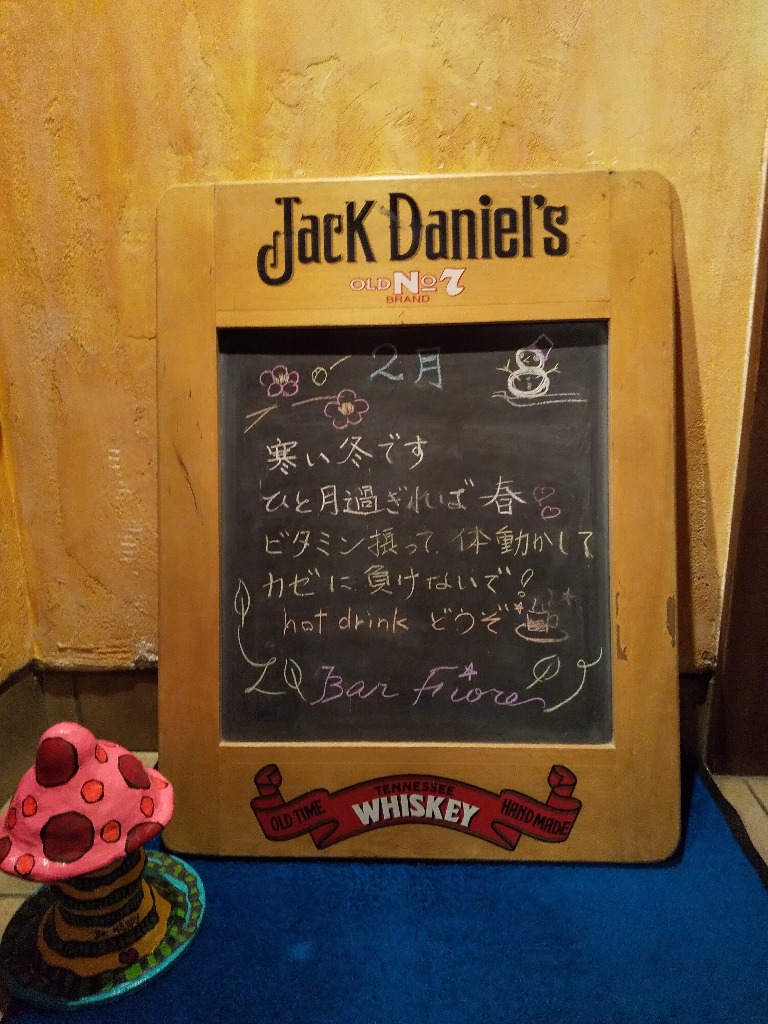 Jack Daniel's
OLD No 7
BRAND
2月
寒い冬です
ひと月過ぎれば 春
ビタミン摂って 体動かして
カゼに負けないで!
hot drink どうぞ
Bar Fiore
TENNESSEE
OLD TIME WHISKEY HAND MADE